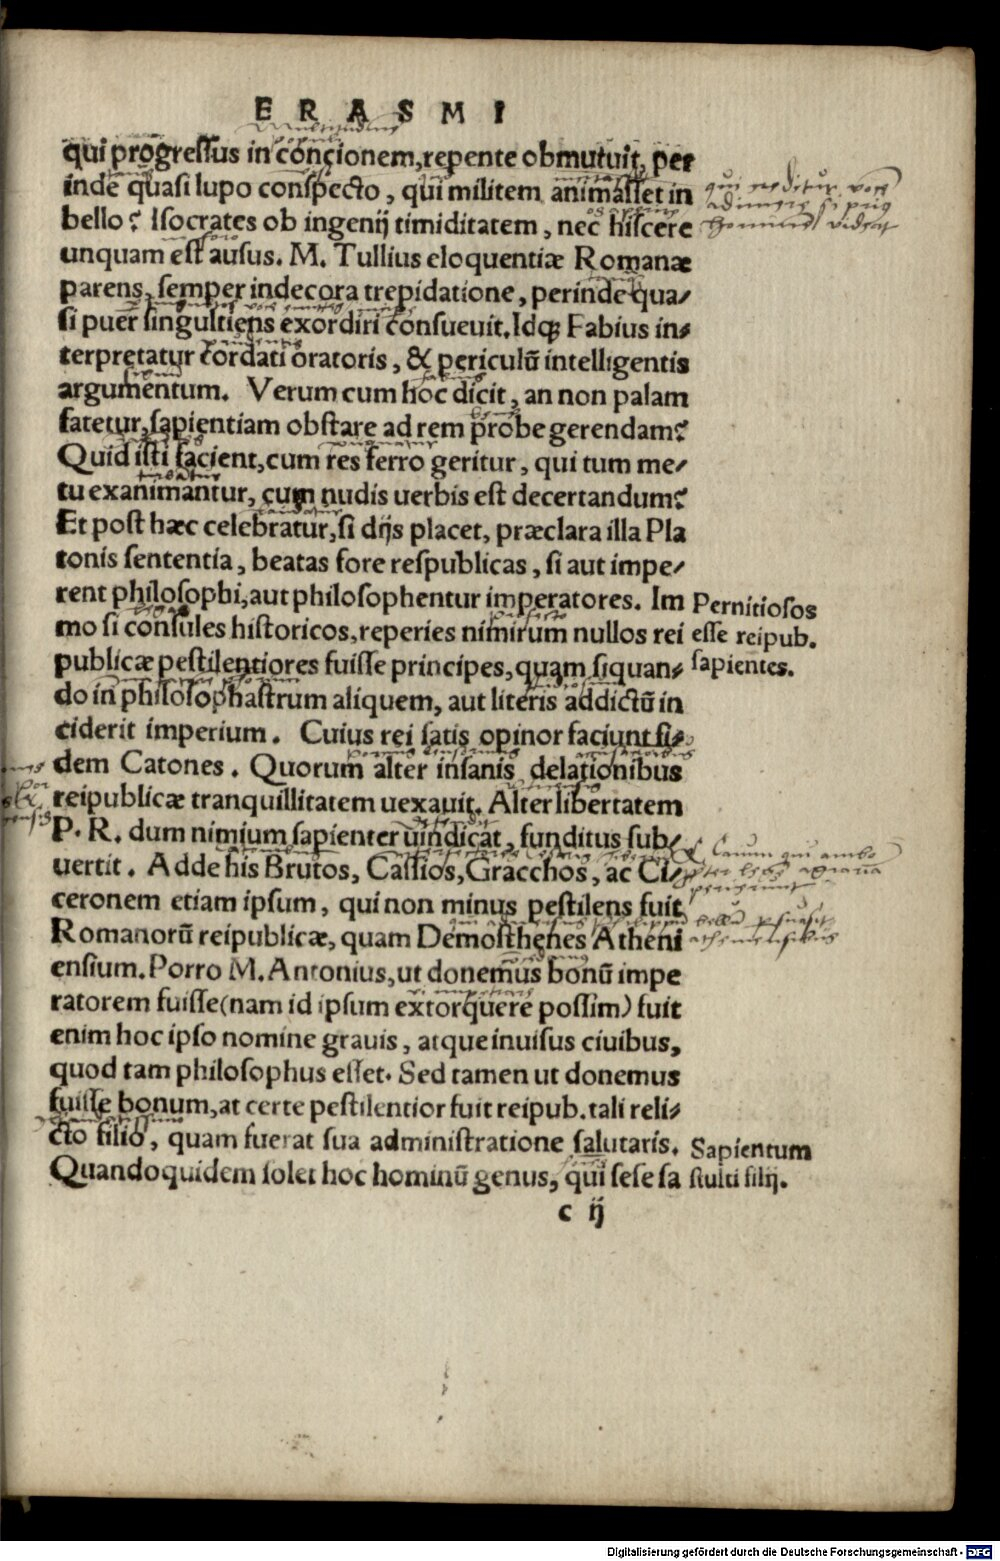 ERASMI
qui progressus in concionem, repente obmutuit, per
inde quasi lupo conspecto, qui militem animasset in
bello? Isocrates ob ingenij timiditatem, nec hiscere
unquam est ausus. M. Tullius eloquentiæ Romanæ
parens, semper indecora trepidatione, perinde qua/
si puer singultiens exordiri consueuit. Idq; Fabius in/
terpretatur cordati oratoris, & periculū intelligentis
argumentum. Verum cum hoc dicit, an non palam
fatetur, sapientiam obstare ad rem probe gerendam?
Quid isti facient, cum res ferro geritur, qui tum me/
tu exanimantur, cum nudis uerbis est decertandum?
Et post hæc celebratur, si dijs placet, præclara illa Pla
tonis sententia, beatas fore respublicas, si aut impe/
rent philosophi, aut philosophentur imperatores. Im
mo si consules historicos, reperies nimirum nullos rei
publicæ pestilentiores fuisse principes, quam siquan/
do in philosophastrum aliquem, aut literis addictū in
ciderit imperium. Cuius rei satis opinor faciunt fi/
dem Catones. Quorum alter insanis delationibus
reipublicæ tranquillitatem uexauit. Alter libertatem
P. R. dum nimium sapienter uindicat, funditus sub/
uertit. Adde his Brutos, Cassios, Gracchos, ac Ci/
ceronem etiam ipsum, qui non minus pestilens fuit
Romanorū reipublicæ, quam Demosthenes Atheni
ensium. Porro M. Antonius, ut donemus bonū impe
ratorem fuisse (nam id ipsum extorquere possim) fuit
enim hoc ipso nomine grauis, atque inuisus ciuibus,
quod tam philosophus esset. Sed tamen ut donemus
fuisse bonum, at certe pestilentior fuit reipub. tali reli/
cto filio, quam fuerat sua administratione salutaris.
Quandoquidem solet hoc hominū genus, qui sese sa
c ij
Pernitiosos
esse reipub.
sapientes.
Sapientum
stulti filij.
Digitalisierung gefördert durch die Deutsche Forschungsgemeinschaft - DFG